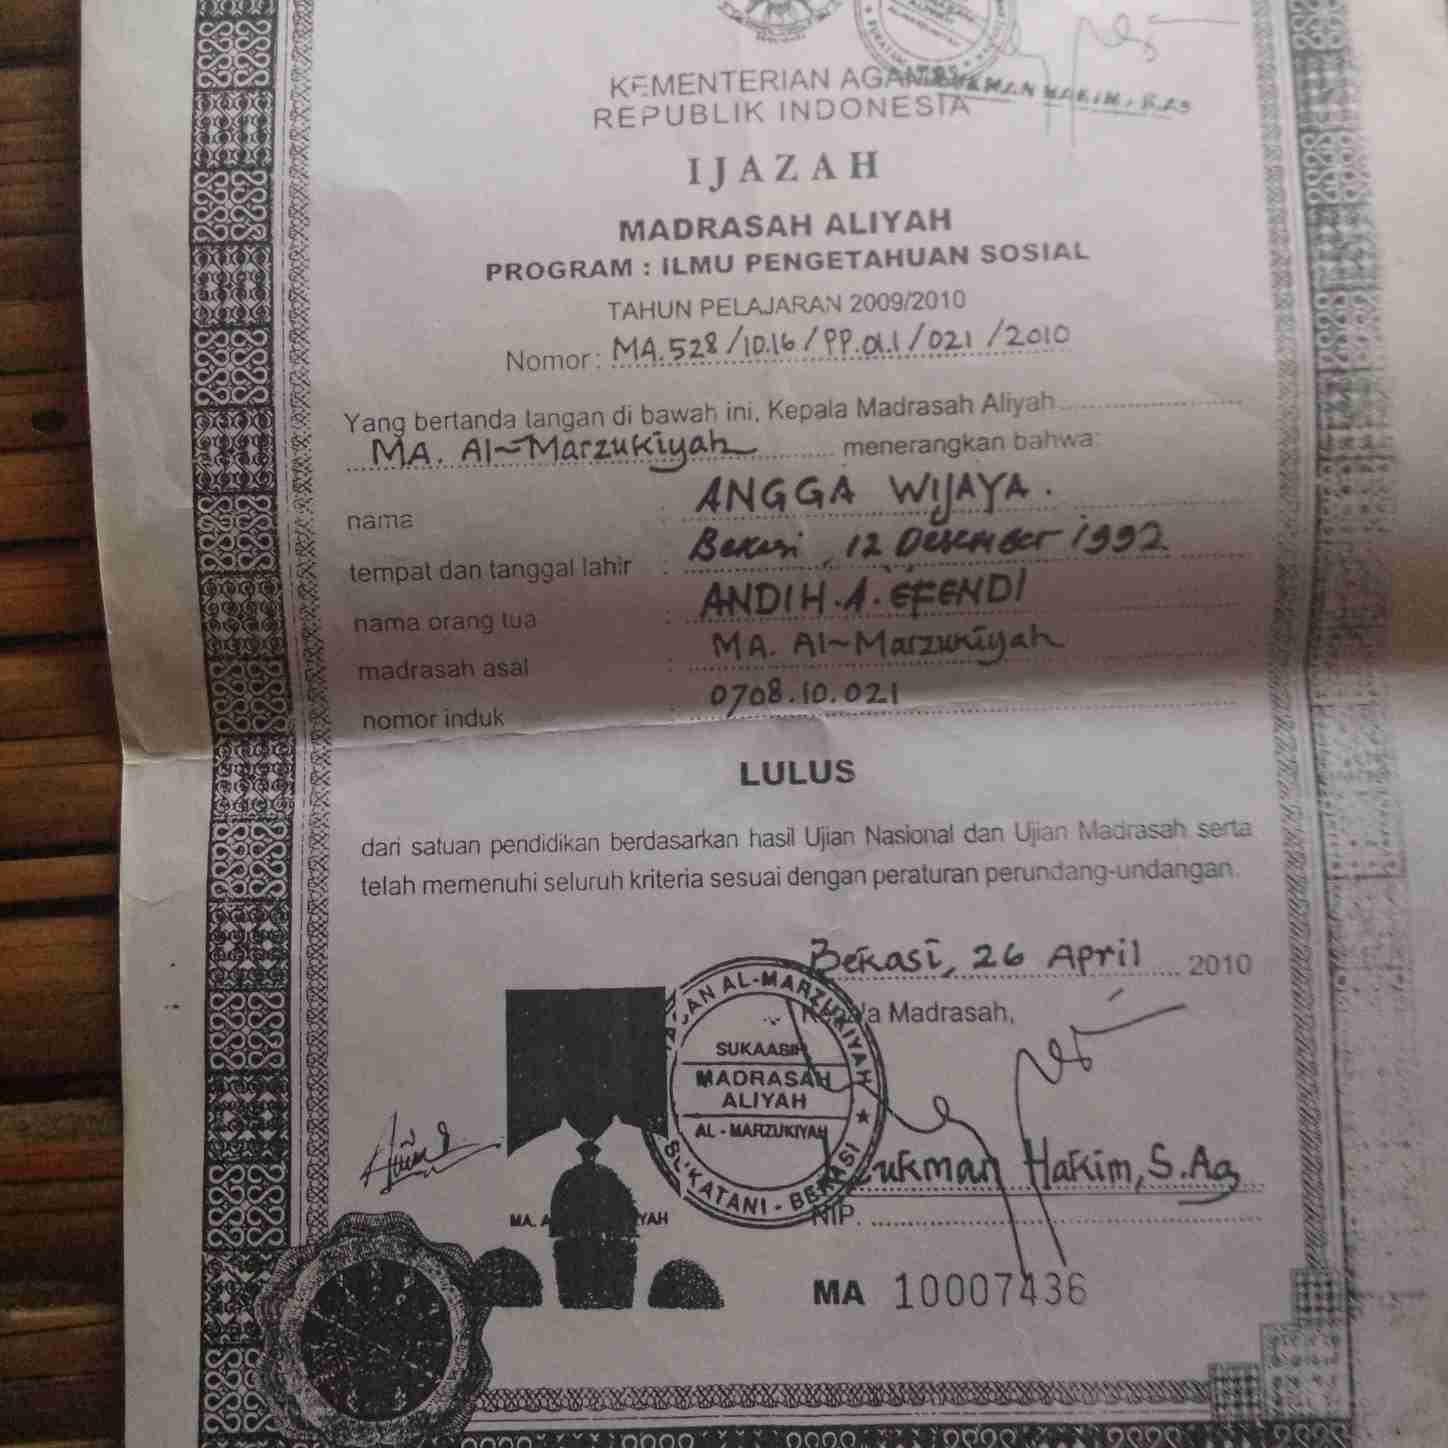 KEMENTERIAN AGAMA
REPUBLIK INDONESIA
IJAZAH
MADRASAH ALIYAH
PROGRAM : ILMU PENGETAHUAN SOSIAL
TAHUN PELAJARAN 2009/2010
Nomor : MA.528/10.16/PP.01.1/021/2010
Yang bertanda tangan di bawah ini, Kepala Madrasah Aliyah
MA. Al-Marzukiyah menerangkan bahwa:
nama : ANGGA WIJAYA.
tempat dan tanggal lahir : Bekasi, 12 Desember 1992
nama orang tua : ANDIH.A.EFENDI
madrasah asal : MA. Al-Marzukiyah
nomor induk : 0708.10.021
LULUS
dari satuan pendidikan berdasarkan hasil Ujian Nasional dan Ujian Madrasah serta
telah memenuhi seluruh kriteria sesuai dengan peraturan perundang-undangan.
Bekasi, 26 April 2010
Madrasah,
AL-MARZUKIYAH
SUKAASIH
MADRASAH
ALIYAH
AL - MARZUKIYAH
SUKATANI - BEKASI
Lukman Hakim, S.Ag
NIP.
MA 10007436